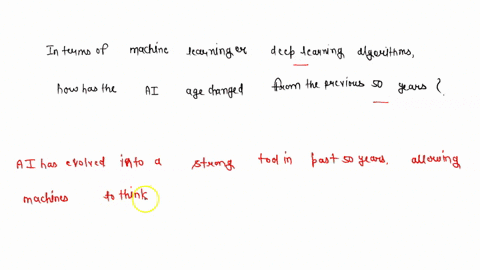 In terms of machine learning or deep learning algorithms,
how has the AI age changed from the previous 50 years ?
AI has evolved into a strong tool in past 50 years, allowing
machines to think